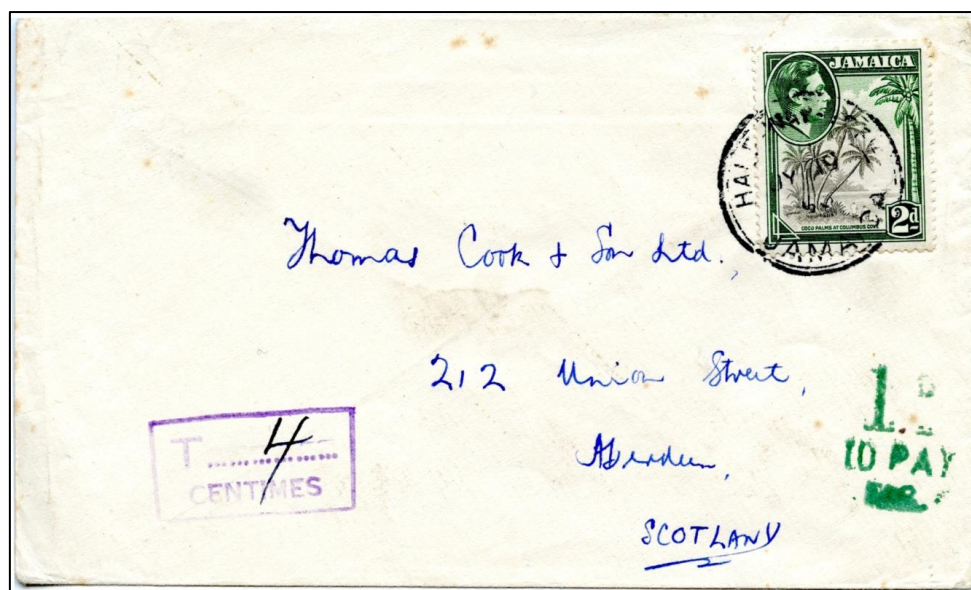 JAMAICA
COCO PALMS AT COLUMBUS COVE
2d
JAMAICA
Thomas Cook & Son Ltd.,
212 Union Street,
Aberdeen,
SCOTLAND
T 4
CENTIMES
1D
TO PAY